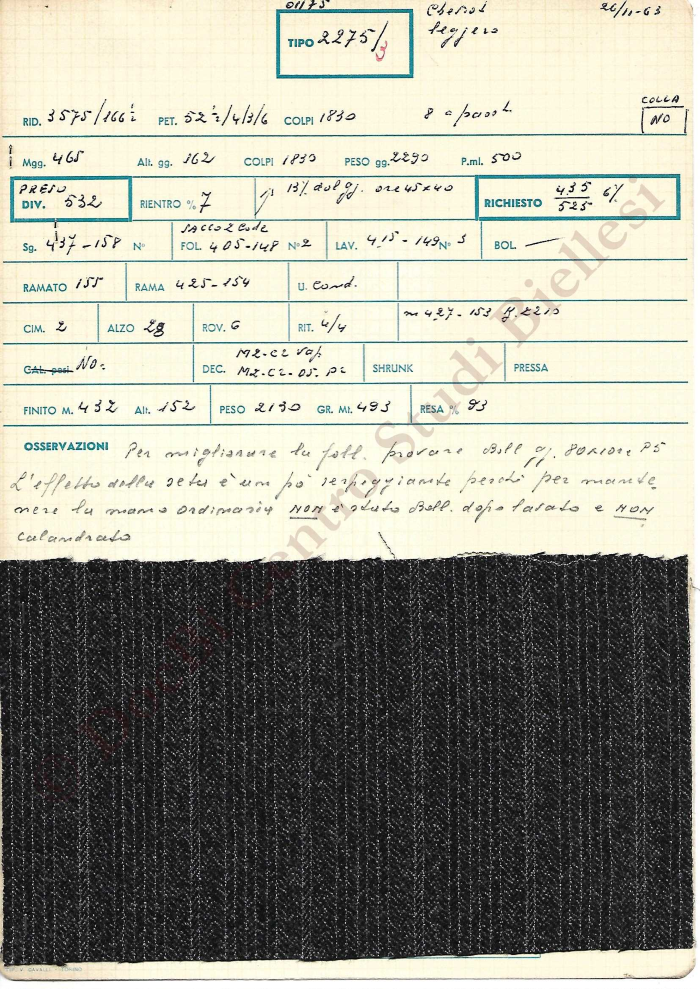 01175
Cheviot 26/11-63
TIPO 2275/3 leggero
COLLA
RID. 3575/166½ PET. 52½/4/3/6 COLPI 1830 8 a pass. NO
Mgg. 465 Alt. gg. 162 COLPI 1830 PESO gg. 2290 P.ml. 500
PRESO
DIV. 532 RIENTRO % 7 13% dal gg. ore 45x40 RICHIESTO 435/525 6%
SACCO 2 Code
Sg. 437-158 N° FOL. 405-148 N° 2 LAV. 415-149 N° 3 BOL. —
RAMATO 155 RAMA 425-154 U. Cond.
m 427-153 g. 2210
CIM. 2 ALZO 28 ROV. 6 RIT. 4/4
CAL. pesi. No= DEC. M2-C2 Vap SHRUNK PRESSA
M2-C2-05. P2
FINITO M. 432 Alt. 152 PESO 2130 GR. Mt. 493 RESA % 93
OSSERVAZIONI Per migliorare la foll. provare Boll gg. P5
L'effetto della seta è un pò serpeggiante perché per mante-
nere la mano ordinaria NON è stato Boll. dopo lavato e NON
calandrato
© DocBi Centro Studi Biellesi
V. CAVALLI - TORINO